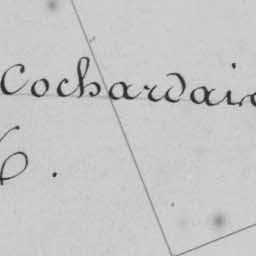 Cochardai
6.